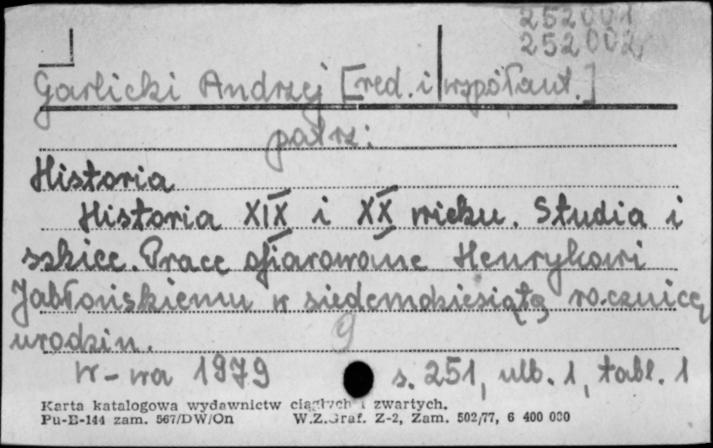 252001
252002
Garlicki Andrzej [red. i współaut.]
patrz:
Historia
Historia XIX i XX wieku. Studia i
szkice. Prace ofiarowane Henrykowi
Jabłońskiemu w siedemdziesiątą rocznicę
urodzin.
9
W-wa 1979 s. 251, ulb. 1, tabl. 1
Karta katalogowa wydawnictw ciągłych i zwartych.
Pu-E-144 zam. 567/DW/On W.Z.Graf. Z-2, Zam. 502/77, 6 400 000